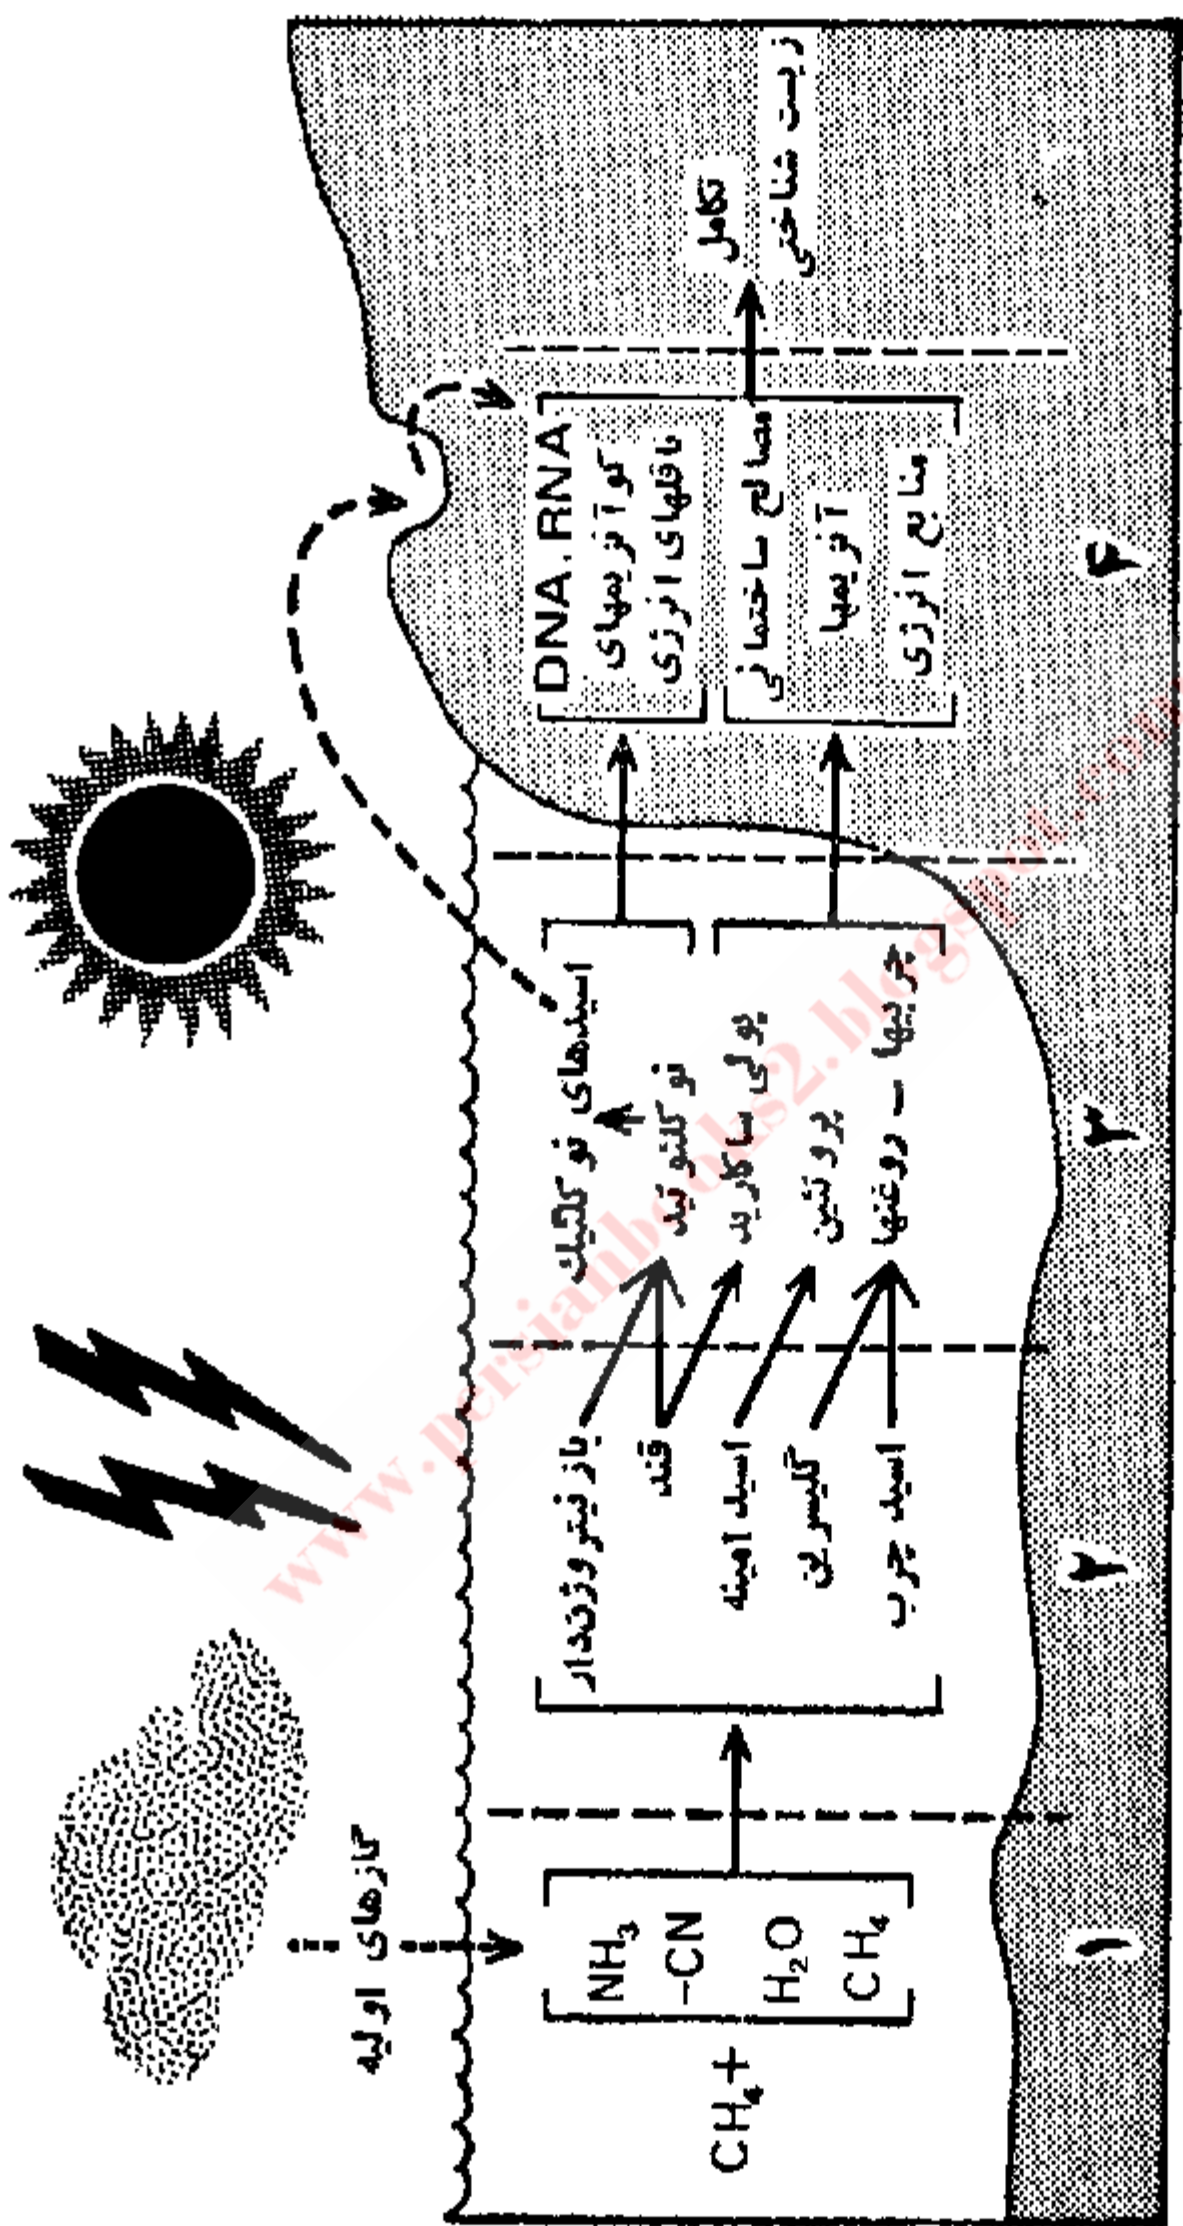 گازهای اولیه
CH₄+
NH₃
-CN
H₂O
CH₄
باز نیتروژن‌دار
قند
اسید امینه
گلیسرین
اسید چرب
اسیدهای نوکلئیك
نوکلئوتید
پولی ساکارید
پروتئین
چربیها - روغنها
DNA.RNA
کوآنزیمهای
ناقلهای انرژی
مصالح ساختمانی
آنزیمها
منابع انرژی
تکامل
زیست شناختی
۱
۲
۳
۴
www.persianbooks2.blogspot.com